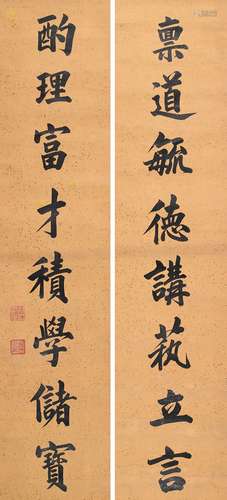 禀道毓德講蓺立言
酌理富才積學儲寶